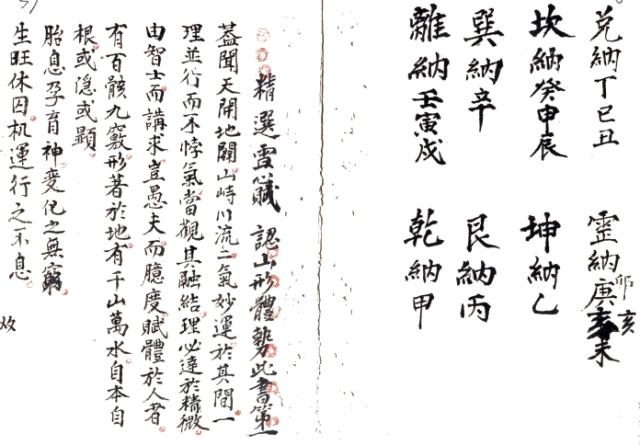 兌納丁巳丑 納庚卯亥未
坎納癸申辰 坤納乙
巽納辛 艮納丙
離納壬寅戌 乾納甲
精選雪心賦 認山形體勢此書第一
蓋聞天開地闢山峙川流二氣妙運於其間一
理並行而不悖氣當觀其融結理必達於精微
由智士而講求豈愚夫而臆度賦體於人者
有百骸九竅形著於地有千山萬水自本自
根或隱或顯
胎息孕育神變化之無窮
生旺休囚机運行之不息